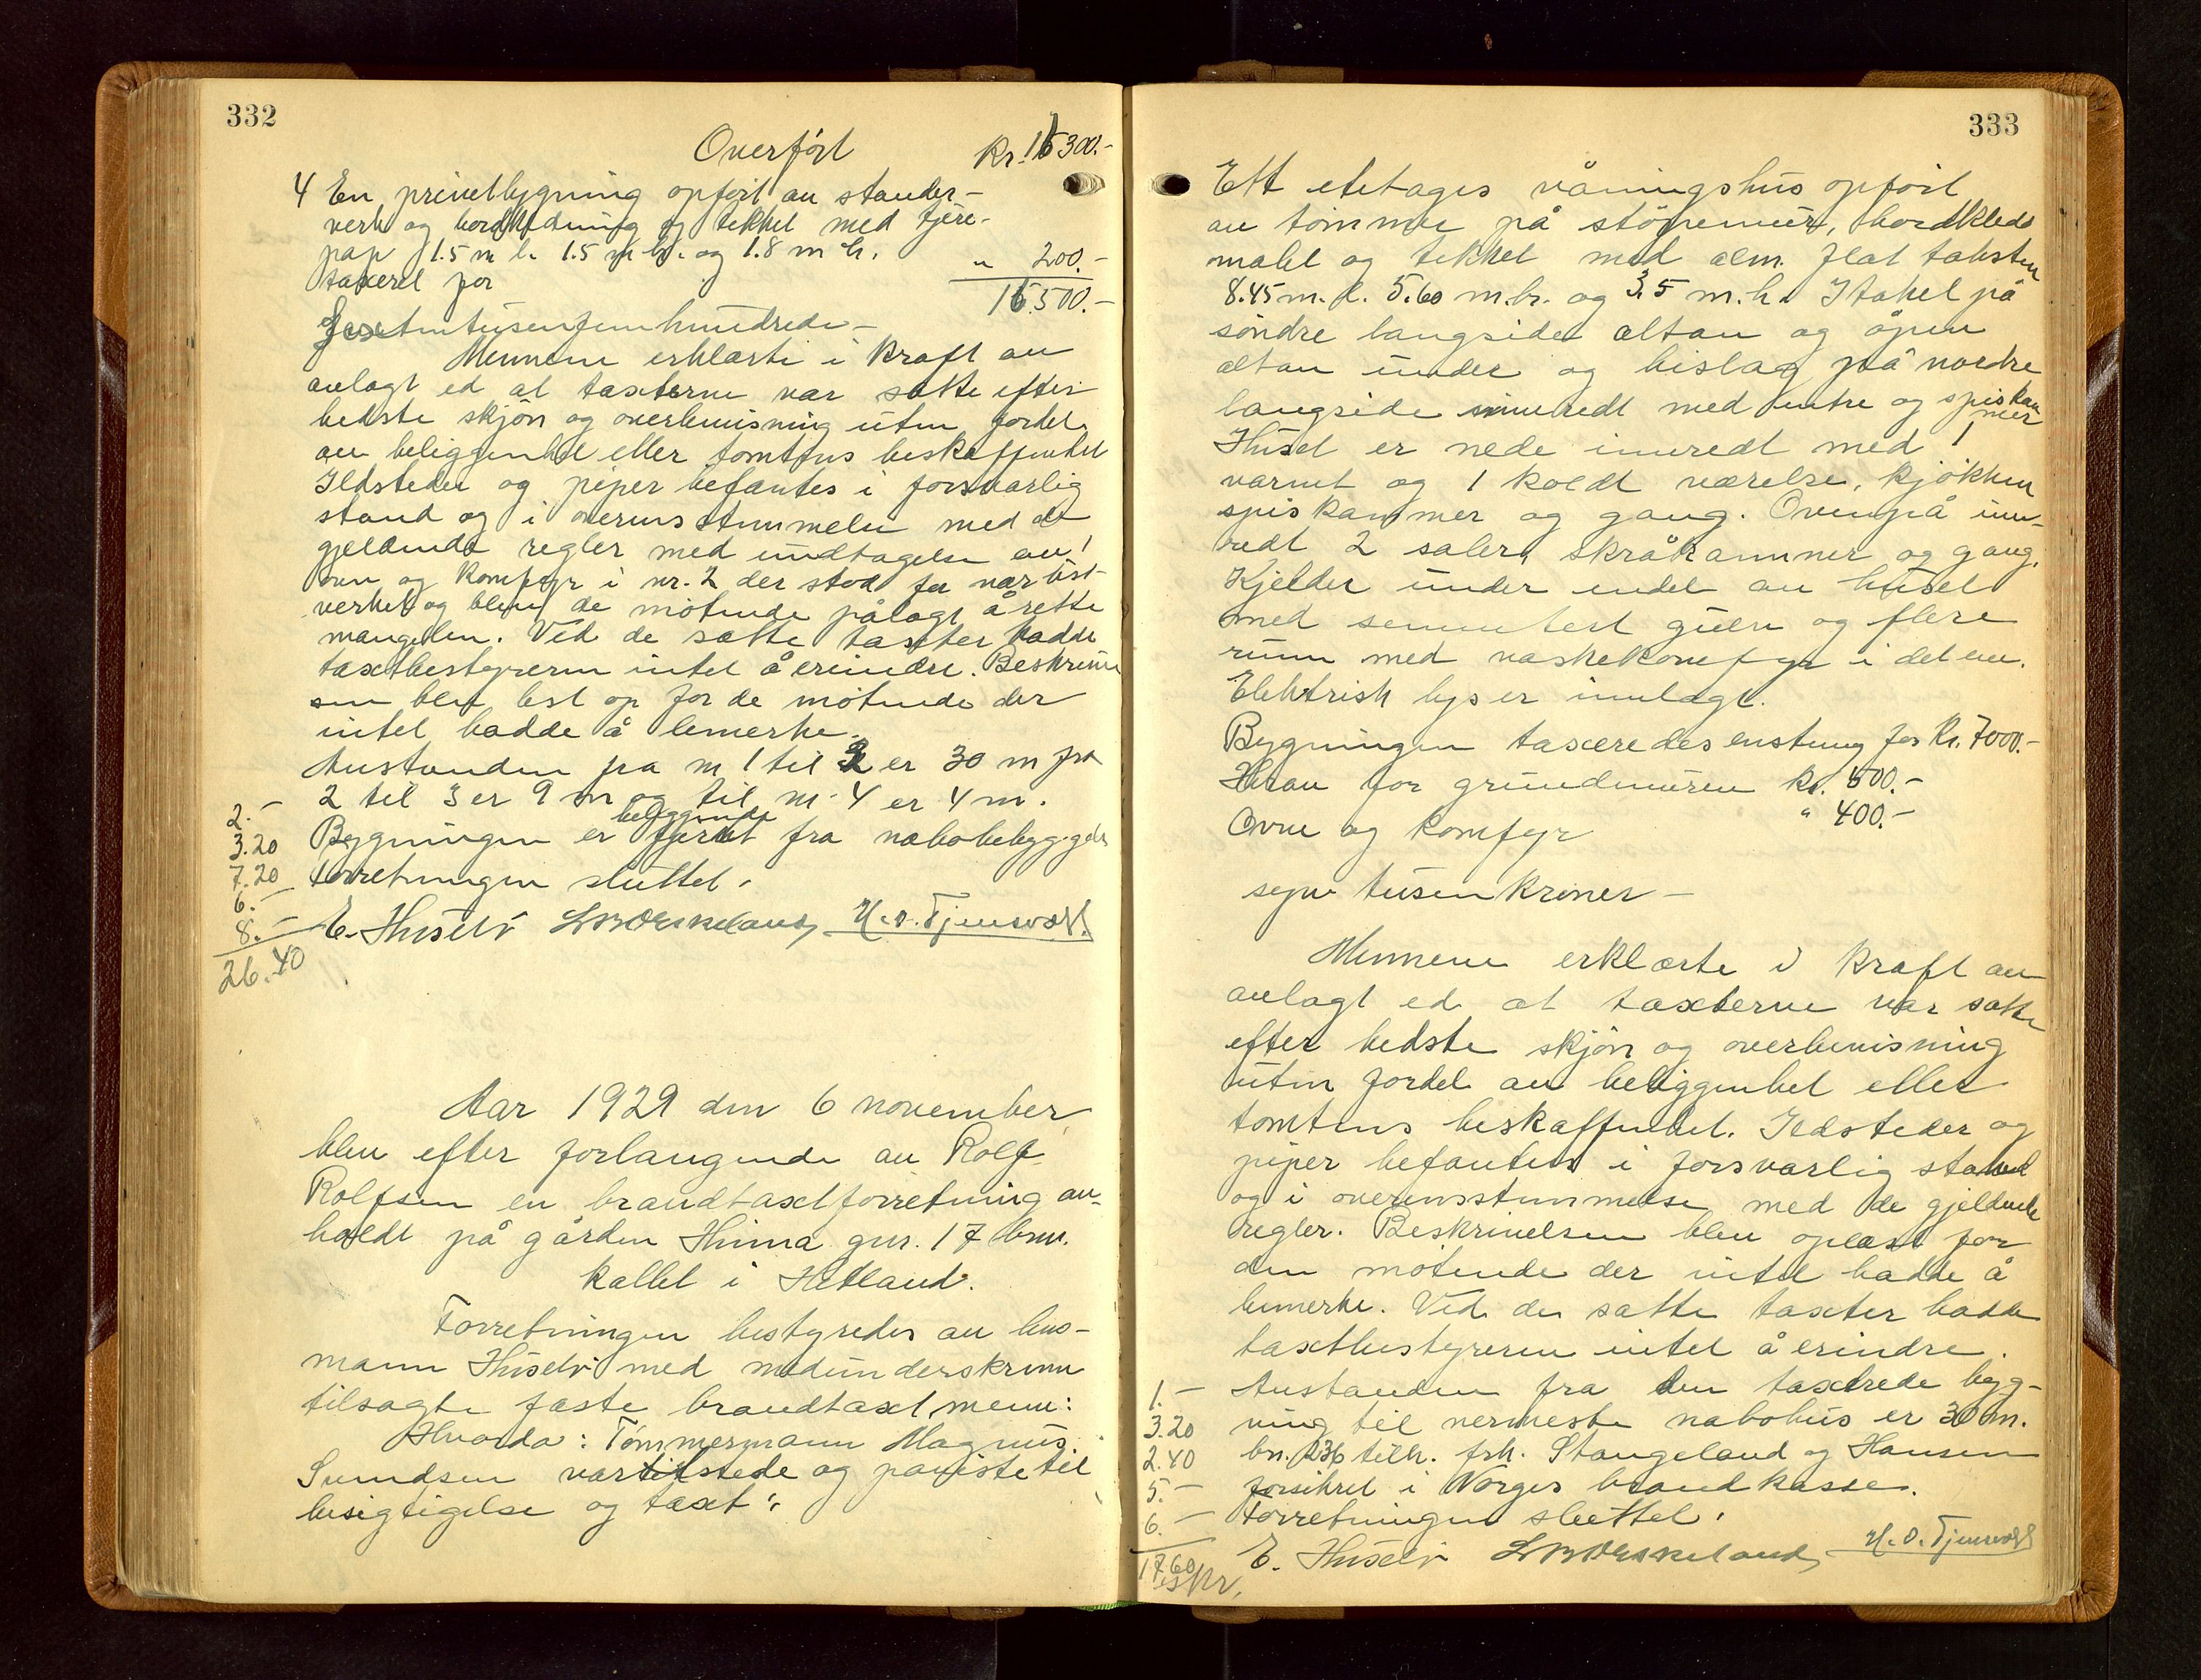 332
Overført Kr. 16300.-
4 En privetbygning opført av stender-
verk og bordkledning og tekket med tjere-
pap 1.5 m l. 1.5 m b. og 1.8 m h.
taxeret for " 200.-
16.500.-
Sextentusenfemhundrede -
Mennene erklærte i kraft av
avlagt ed at taxterne var satte efter
bedste skjøn og overbevisning uten fordel
av beliggenhet eller tomtens beskaffenhet
Ildsteder og piper befantes i forsvarlig
stand og i overensstemmelse med de
gjeldende regler med undtagelse av 1
ovn og komfyr i nr. 2 der stod for nær
verket og blev de møtende pålagt å rette
mangelen. Ved de satte taxter hadde
taxtbestyreren intet å erindre. Beskrivel
sen blev lest op for de møtende der
intet hadde å bemerke.
Avstanden fra nr 1 til 2 er 30 m fra
2 til 3 er 9 m og til nr. 4 er 4 m.
2.-
beliggende
3.20 Bygningen er fjernt fra nabobebyggelse
7.20 Forretningen sluttet.
6.-
8.- E. Husebø H.O. Tjensvold.
26.40
Aar 1929 den 6 november
blev efter forlangende av Rolf
Rolfsen en brandtaxtforretning av-
holdt på gården Hinna gnr. 17 bnr.
kallet i Hetland.
Forretningen bestyredes av lens-
mann Husebø med medunderskrevne
tilsagte faste brandtaxtmenn:
Hvorda: Tømmermann Magnus
Svendsen var tilstede og paviste til
besigtigelse og taxt:
333
Ett etetages våningshus opført
av tømmer på støpemur, bordkledd
malet og tekket med alm. flat taksten
8.45 m. l. 5.60 m. br. og 3,5 m. h. I taket på
søndre langside altan og åpen
altan under og bislag på nordre
langside innredt med entre og spiskam
mer
Huset er nede innredt med 1
varmt og 1 koldt værelse, kjøkken
spiskammer og gang. Ovenpå inn-
redt 2 saler, skråkammer og gang.
Kjelder under endel av huset
med sementert gulv og flere
rum med vaskekomfyr i det ene.
Elektrisk lys er innlagt.
Bygningen taxeredes enstemig for Kr. 7000.-
Herav for grundmuren kr. 500.-
Ovne og komfyr " 400.-
syv tusen kroner -
Mennene erklærte i kraft av
avlagt ed at taxterne var satte
efter bedste skjøn og overbevisning
uten fordel av beliggenhet eller
tomtens beskaffenhet. Ildsteder og
piper befantes i forsvarlig stand
og i overensstemmelse med de gjeldende
regler. Beskrivelsen blev oplæst for
den møtende der intet hadde å
bemerke. Ved de satte taxter hadde
taxtbestyreren intet å erindre.
1.- Avstanden fra den taxerede byg-
3.20 ning til nermeste nabohus er 30 m.
2.40 bn. 236 tilh. frk. Stangeland og Hansen
5.- forsikret i Norges brandkasse.
6.- Forretningen sluttet.
17.60 E. Husebø H.O. Tjensvold